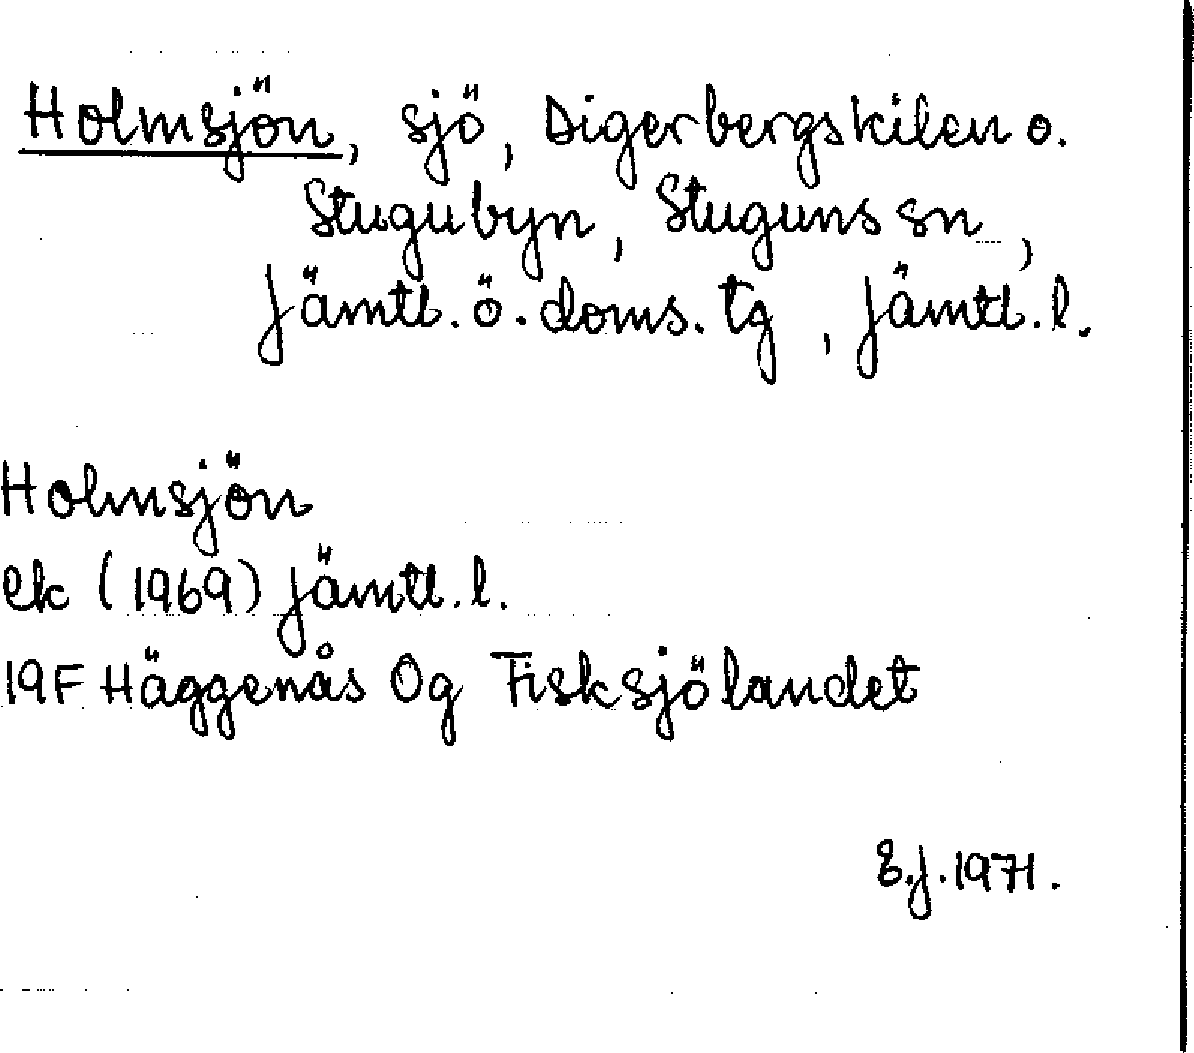 Holmsjön, sjö, Digerbergskilen o.
Stugubyn, Stuguns sn,
Jämtl. ö. doms. tg, Jämtl. l.
Holmsjön
ek (1969) Jämtl. l.
19F Häggenås 0g Fisksjölandet
E.J. 1971.